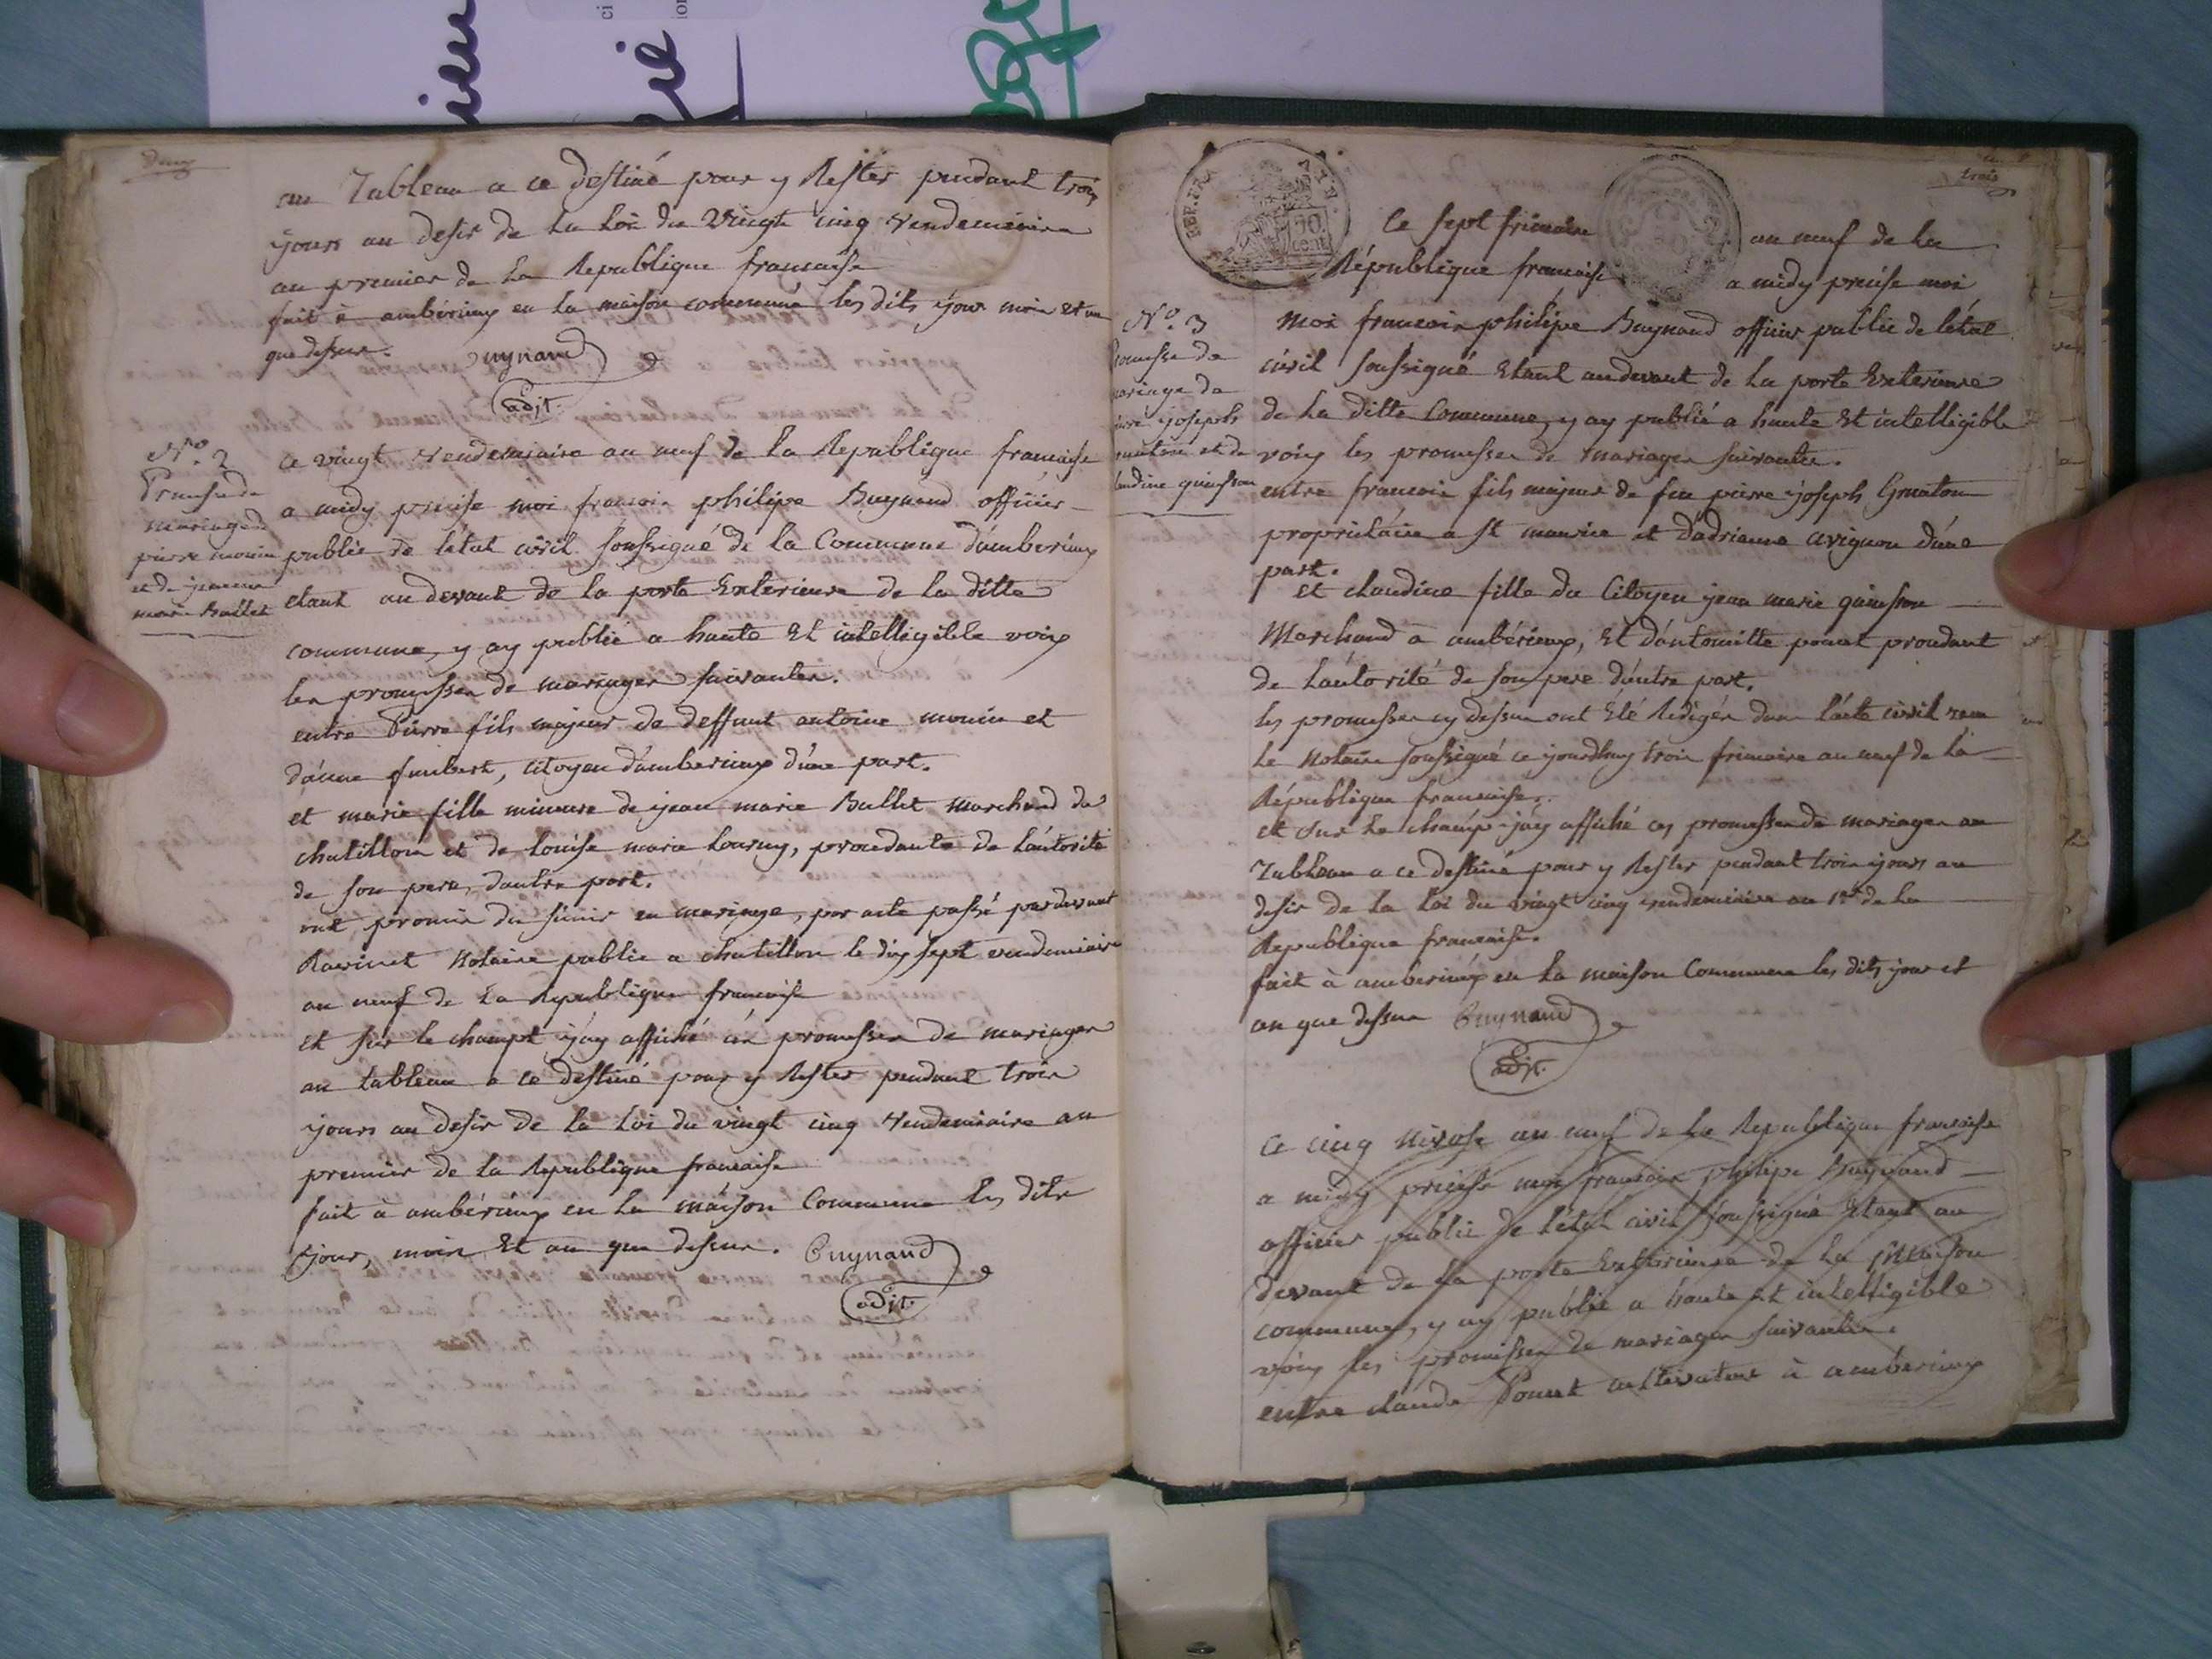 Deux
au Tableau a ce destiné pour y Rester pendant trois
jours au desir de La Loi du Vingt cinq Vendemiaire
an premier de La Republique francaise
fait à ambérieux en la maison commune les dits jour mois et an
que dessus. Buynand
adjt.
N.° 2
Promesse de
mariage de
pierre monin
et de jeanne
marie Ballet
ce vingt vendemiaire an neuf de La Republique francaise
a midy precise moi francois philipe Buynand officier
public de létat civil soussigné de la Commune d'amberieux
etant au devant de la porte Exterieure de la ditte
commune, y ay publié a haute Et intelligible voix
les promesses de mariages suivantes.
entre Pierre fils majeur de deffunt antoine monin et
d'anne funbert, citoyen d'amberieux d'une part.
et marie fille mineure de jean marie Ballet marchand de
chatillon et de Louise marie Lourny, procedante de Lautorité
de son pere, d'autre part.
ont promis de s'unir en mariage, par acte passé pardevant
Ravinet Notaire public a chatillon le dix sept vendemiaire
an neuf de La Republique francaise
et sur le champt j'ay affiché ces promesses de mariages
au tableau a ce destiné pour y Rester pendant trois
jours au desir de la Loi du vingt cinq Vendemiaire an
premier de La Republique francaise
fait à ambérieux en La maison Commune les dits
jour, mois Et an que dessus. Buynand
adjt.
trois
REP. FRA
50
cent
Ce sept frimaire an neuf de La
République francaise a midy precise moi
N.° 3
promesse de
mariage de
joseph
et de
claudine guinsson
moi francois philipe Buynand officier public de létat
civil soussigné Etant audevant de La porte Exterieure
de La ditte Commune, y ay publié a haute Et intelligible
voix les promesses de mariages suivantes.
entre francois fils majeur de feu pierre joseph Gonaton
propriétaire a St maurice et d'adrienne avignon d'une
part.
et claudine fille du Citoyen jean marie guinsson
Marchand a ambérieux, Et d'antoinette ponet procedant
de Lautorité de son pere d'autre part.
les promesses cy dessus ont Eté Redigés dans l'acte civil
Le Notaire soussigné ce jourdhuy trois frimaire an neuf de La
République francaise.
et Sur Le champ j'ay affiché ces promesses de mariages au
Tableau a ce destiné pour y Rester pendant trois jours au
desir de La Loi du vingt cinq vendemiaire an 1er de La
Republique francaise.
fait à amberieux en La maison Commune les dits jour et
an que dessus Buynand
adjt.
Ce cinq Nivose an neuf de La Republique francaise
a midy precise moi francois philipe Buynand
officier public de l'état civil soussigné Etant au
devant de La porte Exterieure de La Maison
commune, y ay publié a haute Et intelligible
voix les promesses de mariages suivantes.
entre claude Ponet cultivateur à ambérieux